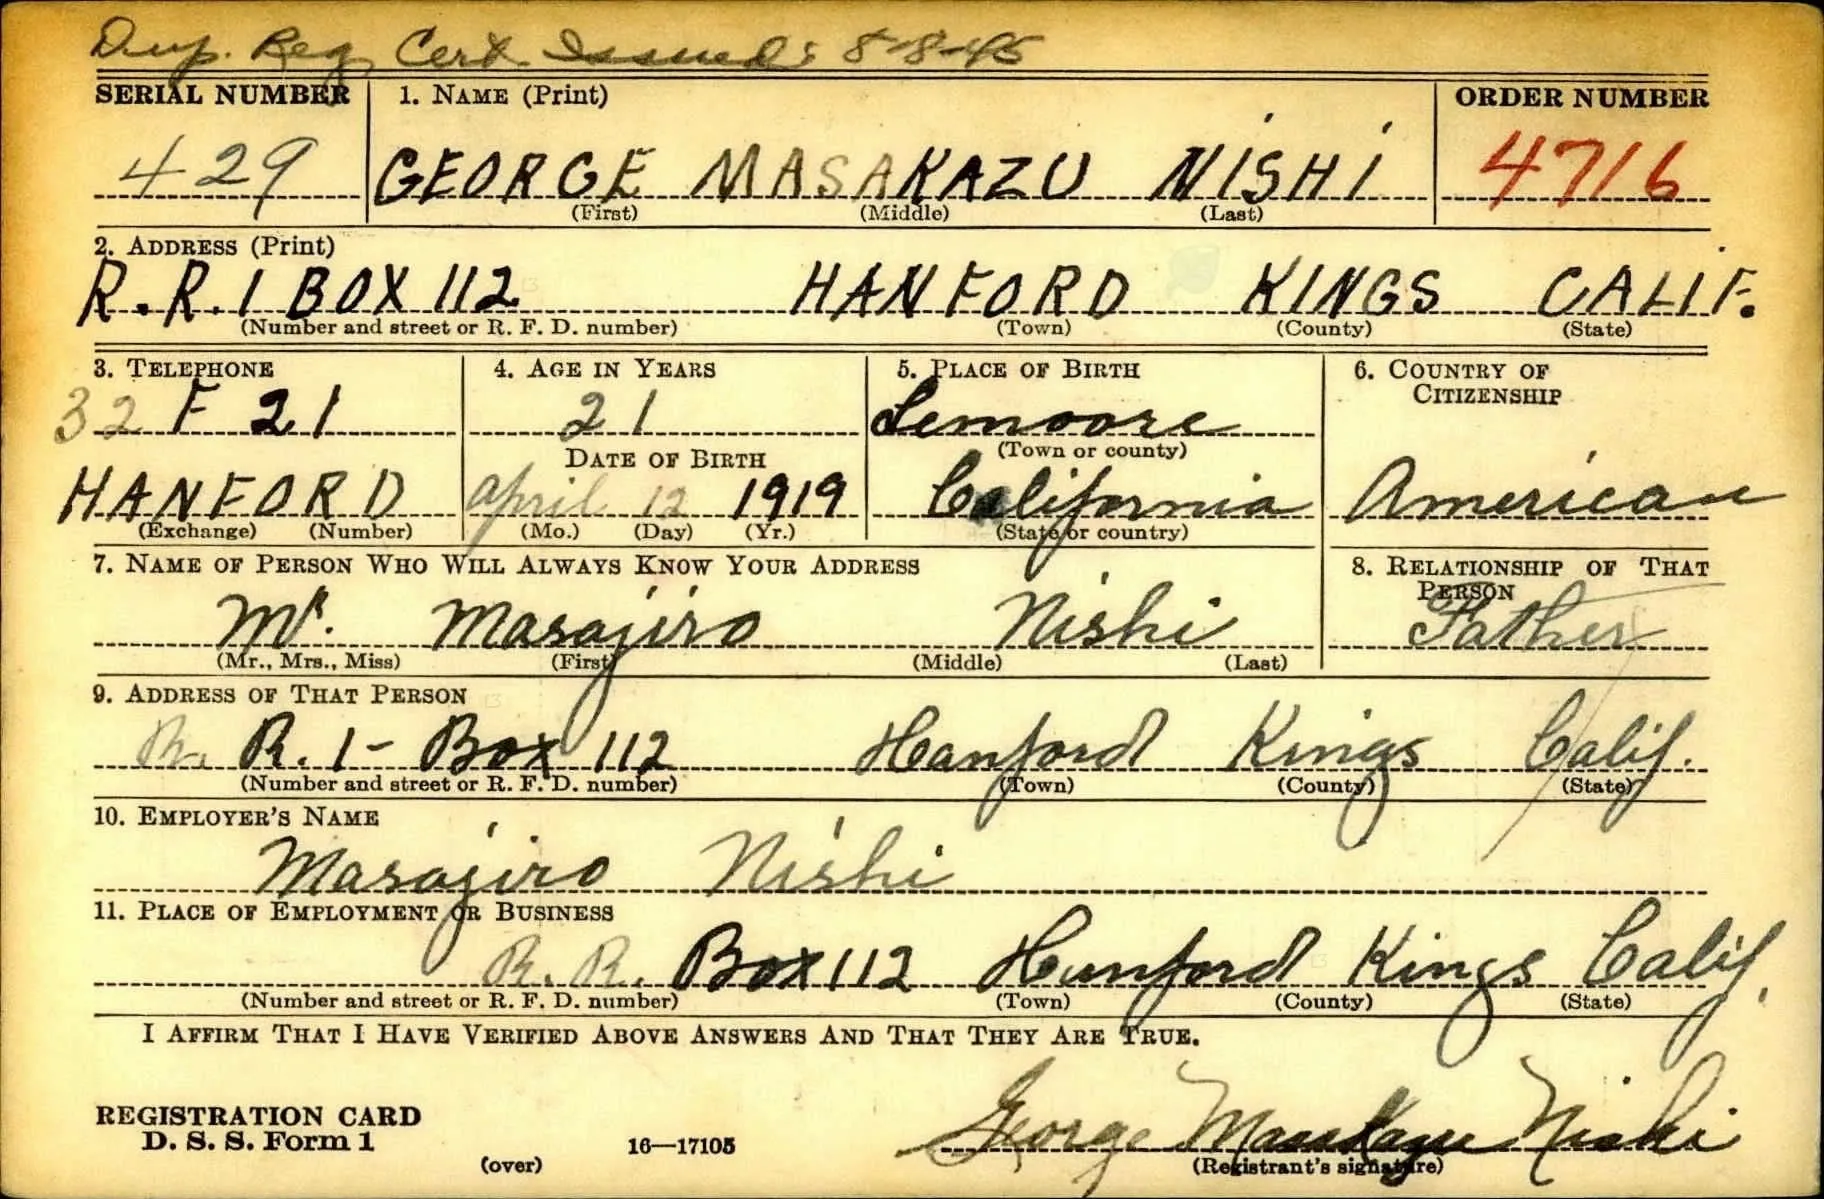 Dup. Reg. Cert. Issued: 8-8-45
SERIAL NUMBER 1. NAME (Print) ORDER NUMBER
429 GEORGE MASAKAZU NISHI 4716
(First) (Middle) (Last)
2. ADDRESS (Print)
R.R. 1 BOX 112 HANFORD KINGS CALIF.
(Number and street or R. F. D. number) (Town) (County) (State)
3. TELEPHONE 4. AGE IN YEARS 5. PLACE OF BIRTH 6. COUNTRY OF
CITIZENSHIP
32 F 21 21 Lemoore
(Town or county)
DATE OF BIRTH
HANFORD April 12 1919 California American
(Exchange) (Number) (Mo.) (Day) (Yr.) (State or country)
7. NAME OF PERSON WHO WILL ALWAYS KNOW YOUR ADDRESS 8. RELATIONSHIP OF THAT
PERSON
Mr. Masajiro Nishi Father
(Mr., Mrs., Miss) (First) (Middle) (Last)
9. ADDRESS OF THAT PERSON
R. R. 1 - Box 112 Hanford Kings Calif.
(Number and street or R. F. D. number) (Town) (County) (State)
10. EMPLOYER'S NAME
Masajiro Nishi
11. PLACE OF EMPLOYMENT OR BUSINESS
R. R. Box 112 Hanford Kings Calif.
(Number and street or R. F. D. number) (Town) (County) (State)
I AFFIRM THAT I HAVE VERIFIED ABOVE ANSWERS AND THAT THEY ARE TRUE.
REGISTRATION CARD
D. S. S. Form 1 16—17105 George Masakazu Nishi
(over) (Registrant's signature)